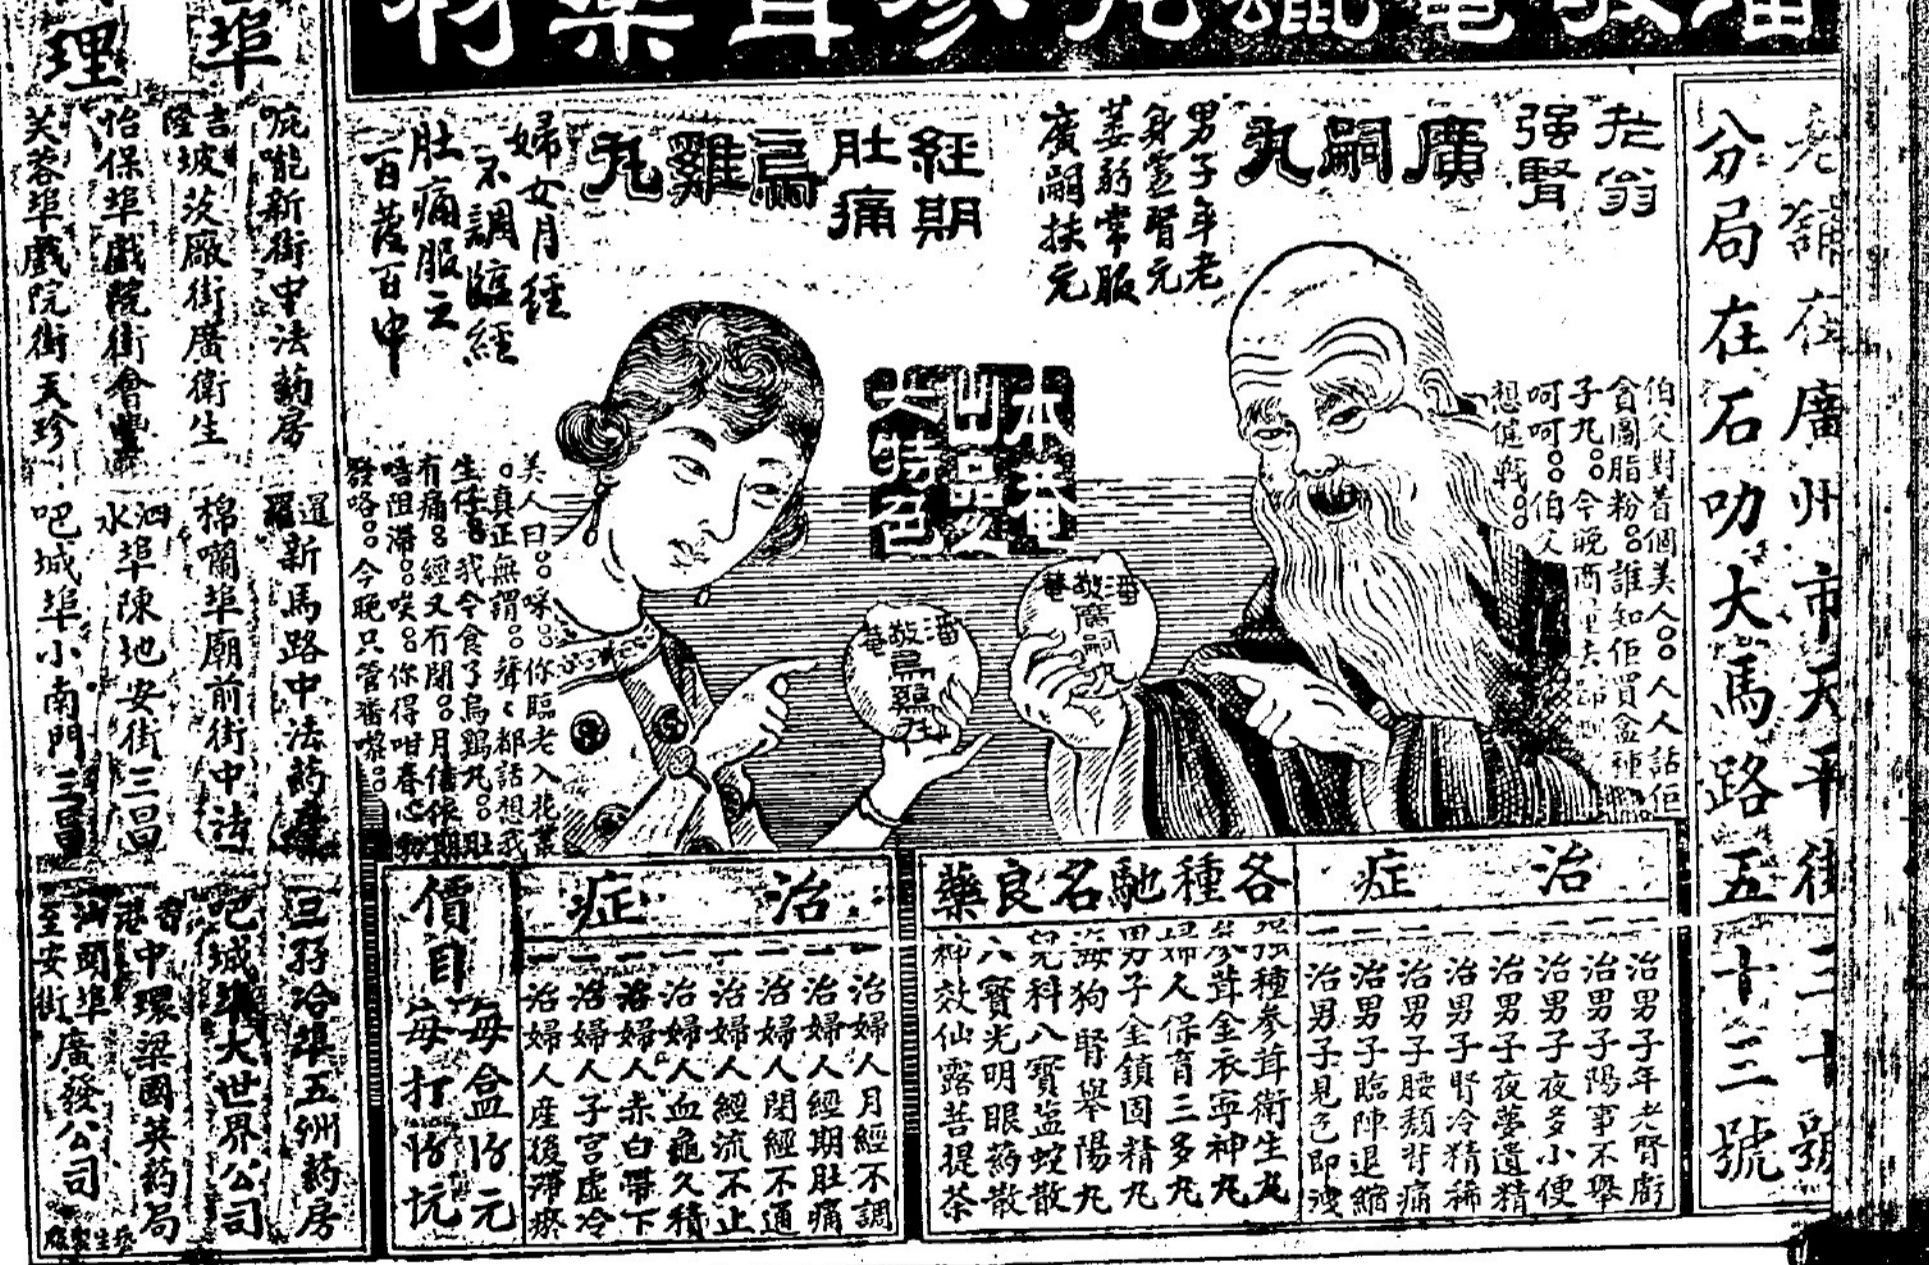 潘敬菴蠟丸參茸藥材
老舖在廣州市天平街三十號
分局在石叻大馬路五十三號
老翁
强腎
廣嗣丸
男子年老
身虛腎元
萎弱常服
廣嗣扶元
經期
肚痛
烏雞丸
婦女月經
不調臨經
肚痛服之
百發百中
本菴
出品之
大特色
伯父對着個美人○○人人話佢
貪圖脂粉○○誰知佢買盒種
子丸○○今晚
呵呵○○伯父
想健戰○○
美人曰○○咪○○你臨老入花叢
○真正無謂○○聲聲都話想我
生仔○○我今食了烏雞丸○○肚
有痛○○經又有閉○○月信依期
唔阻滯○○唉○○你得咁春心動
發咯○○今晚只管番嚟○○
潘敬菴
廣嗣丸
潘敬菴
烏雞丸
治症
一治男子年老腎虧
一治男子陽事不舉
一治男子夜多小便
一治男子夜夢遺精
一治男子腎冷精稀
一治男子腰頹背痛
一治男子臨陣退縮
一治男子見色即洩
各種馳名良藥
强種參茸衛生丸
參茸金衣寧神丸
婦人保育三多丸
男子金鎖固精丸
海狗腎舉陽丸
兒科八寶盐蛇散
八寶光明眼药散
神效仙露菩提茶
治症
一治婦人月經不調
一治婦人經期肚痛
一治婦人閉經不通
一治婦人經流不止
一治婦人血龜久積
一治婦人赤白帶下
一治婦人子宮虛冷
一治婦人産後滯瘀
價目
每盒
元
每打
埠
理
吡嚨新街中法葯房
吉隆坡茨廠街廣衛生
怡保埠戲院街會豐
芙蓉埠戲院街天珍
暹羅新馬路中法葯房
棉囒埠廟前街中法
泗水埠陳地安街三昌
吧城埠小南門三昌
三孖冷埠五洲葯房
吧城埠大世界公司
香港中環梁國英葯局
汕頭埠至安街廣發公司